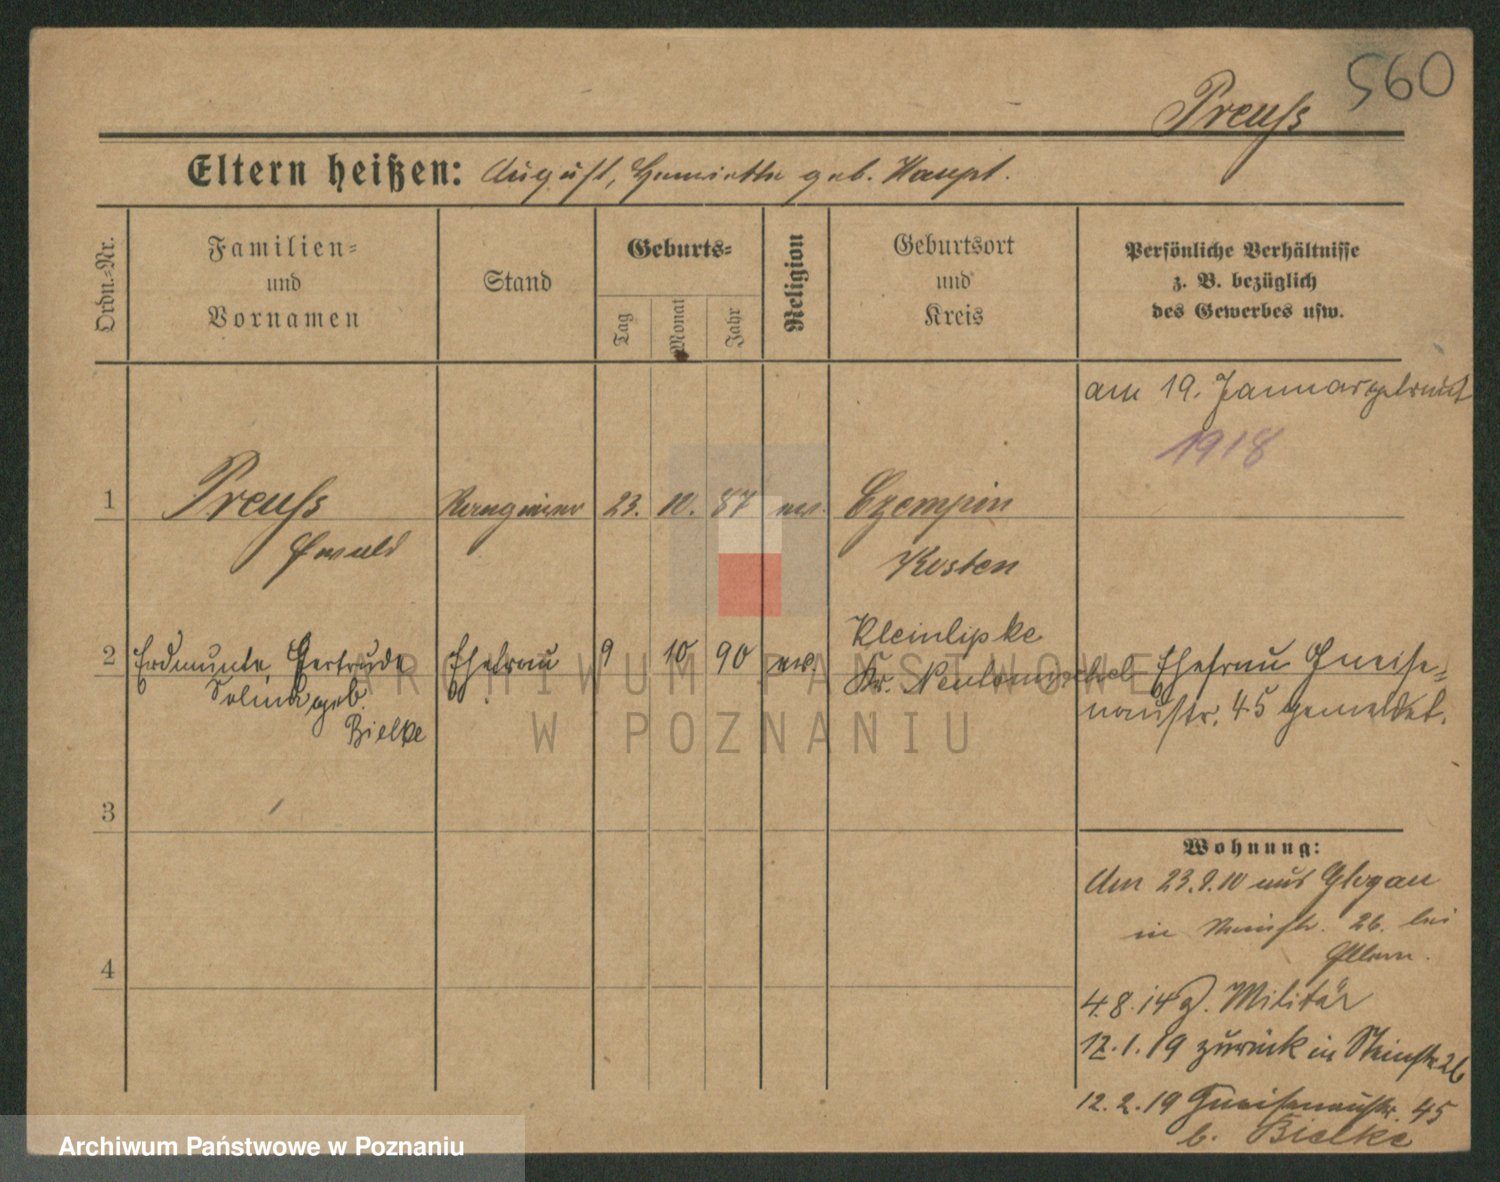 560
Preuß
Eltern heißen: August, Henriette geb. Haupt.
Ordn.-Nr.
Familien-
und
Vornamen
Stand
Geburts-
Tag
Monat
Jahr
Religion
Geburtsort
und
Kreis
Persönliche Verhältnisse
z. B. bezüglich
des Gewerbes usw.
am 19. Januar getraut
1918
1 Preuß 23. 10. 87 ev. Czempin
Ewald Kosten
2 Erdmunte, Gertrude Ehefrau 9 10 90 ev. Kleinlipke
Selma geb. Kr. Neutomischel
Bielke
Ehefrau Gneise-
naustr. 45 gemeldet.
3
4
Wohnung:
Am 23.9.10 aus Glogau
in 26. bei
Eltern.
4.8.14 z. Militär
12.1.19 zurück in 26
12.2.19 Gneisenaustr. 45
b. Bielke
ARCHIWUM PAŃSTWOWE
W POZNANIU
Archiwum Państwowe w Poznaniu